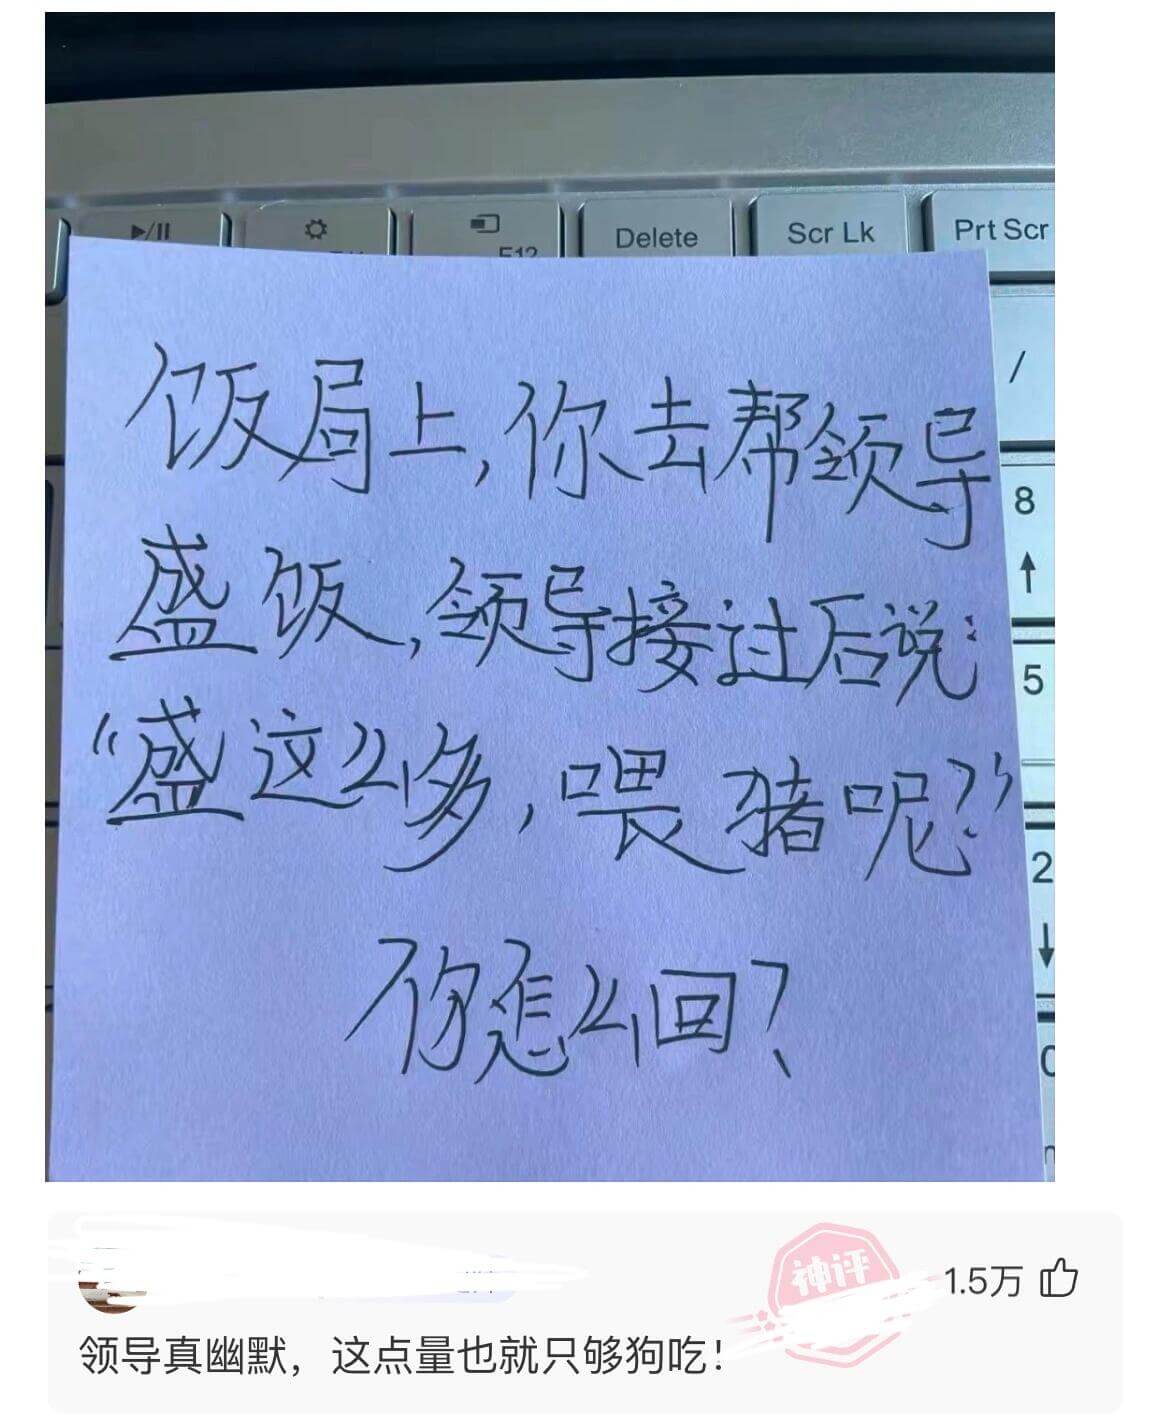 ▶/II
F12
Delete
Scr Lk
Prt Scr
/
8
↑
5
2
↓
饭局上,你去帮领导
盛饭,领导接过后说:
“盛这么多,喂猪呢?”
你怎么回?
神评
1.5万
领导真幽默，这点量也就只够狗吃！